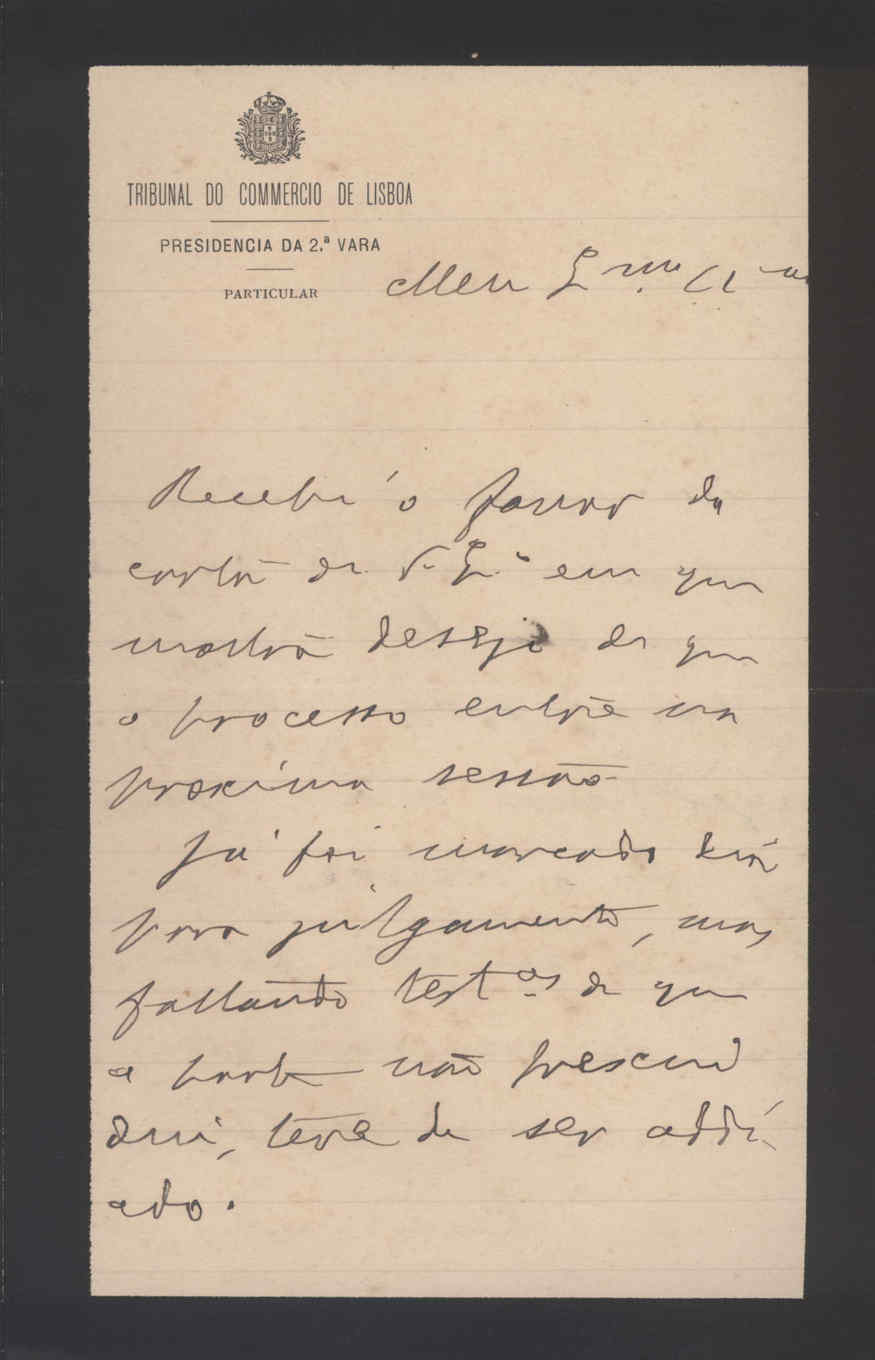 TRIBUNAL DO COMMERCIO DE LISBOA
PRESIDENCIA DA 2.ª VARA
PARTICULAR
Meu Ex.mo A.mo
Recebi o favor da
carta de V. Ex.ª em que
mostra desejo de que
o processo entre na
proxima sessão
Já foi marcado dia
para julgamento, mas
faltando test.as de que
a parte não prescin
diu, teve de ser addi
ado.